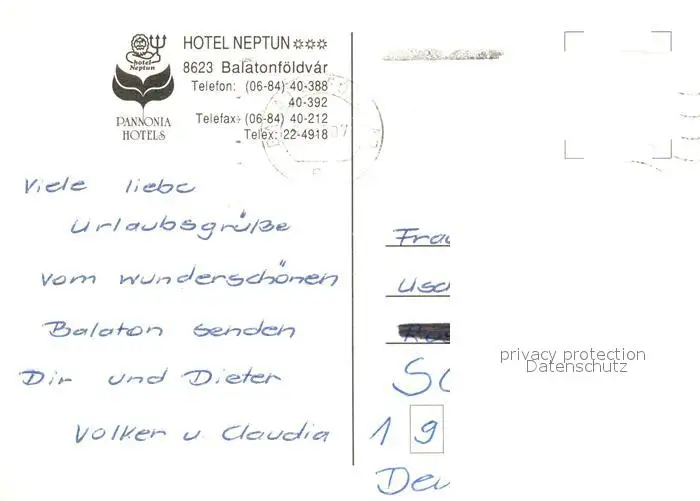 HOTEL NEPTUN ***
8623 Balatonföldvár
Telefon: (06-84) 40-388
40-392
Telefax: (06-84) 40-212
Telex: 22-4918
hotel
Neptun
PANNONIA
HOTELS
Viele liebe
Urlaubsgrüße
vom wunderschönen
Balaton senden
Dir und Dieter
Volker u. Claudia
Frau
1 9
privacy protection
Datenschutz